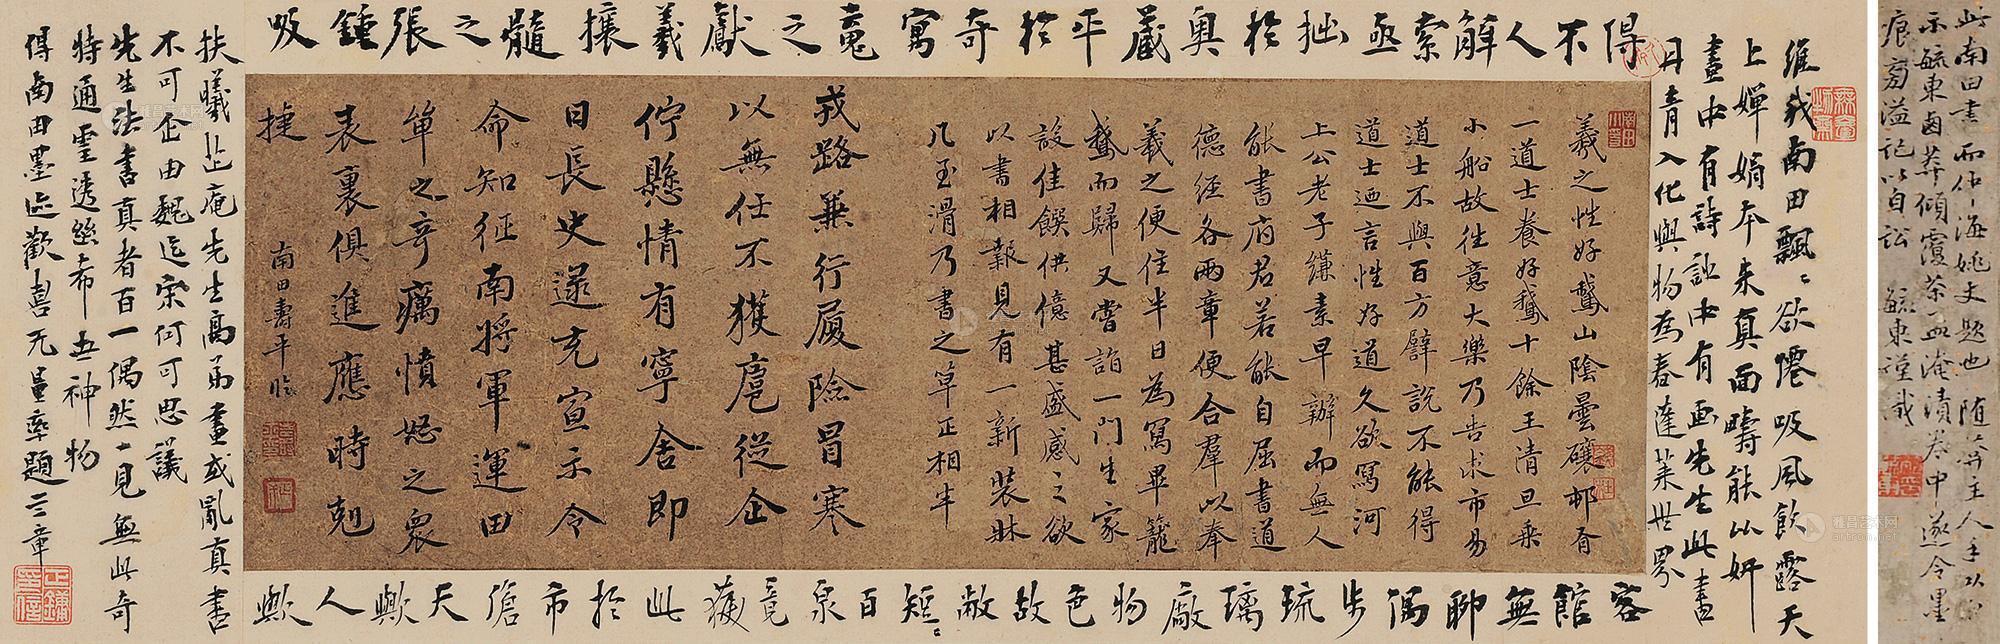 羲之性好鵞山陰曇礦邨有
一道士養好鵞十餘王清旦乗
小船故往意大樂乃告求市易
道士不與百方譬説不能得
道士廼言性好道久欲寫河
上公老子縑素早辦而無人
能書府君若能自屈書道
德經各兩章便合羣以奉
羲之便住半日為寫畢籠
鵞而歸又嘗詣一門生家
設佳饌供億甚盛感之欲
以書相報見有一新裝牀
几至滑乃書之草正相半
戎路兼行履險冒寒
以無任不獲扈從企
佇懸情有寧舍即
日長史逯充宣示令
命知征南將軍運田
單之奇厲憤怒之衆
表裏俱進應時剋
捷
南田壽平臨
維我南田飄飄欲僊吸風飲露天
上嬋娟本来真面疇能以妍
畫中有詩詩中有画先生此書
丹青入化與物為春蓬萊世界
得不人解索亟拙於奥蔵平於奇寓竟之獻羲攘髓之張鍾吸
容館無聊偶步琉璃廠物色故敝短短百泉竟獲此於市傖天歟人歟
扶曦止庵先生髙弟畫或亂真書
不可企由魏迄宋何可思議
先生法書真者百一偶然一見無此奇
特通靈透絲希世神物
得南田墨迹歡喜无量率題三章
此南田書而伯海姚丈題也随
示毓東鹵莽傾覆茶一盂淹漬卷中遂令墨
痕旁溢記以自訟 毓東謹識